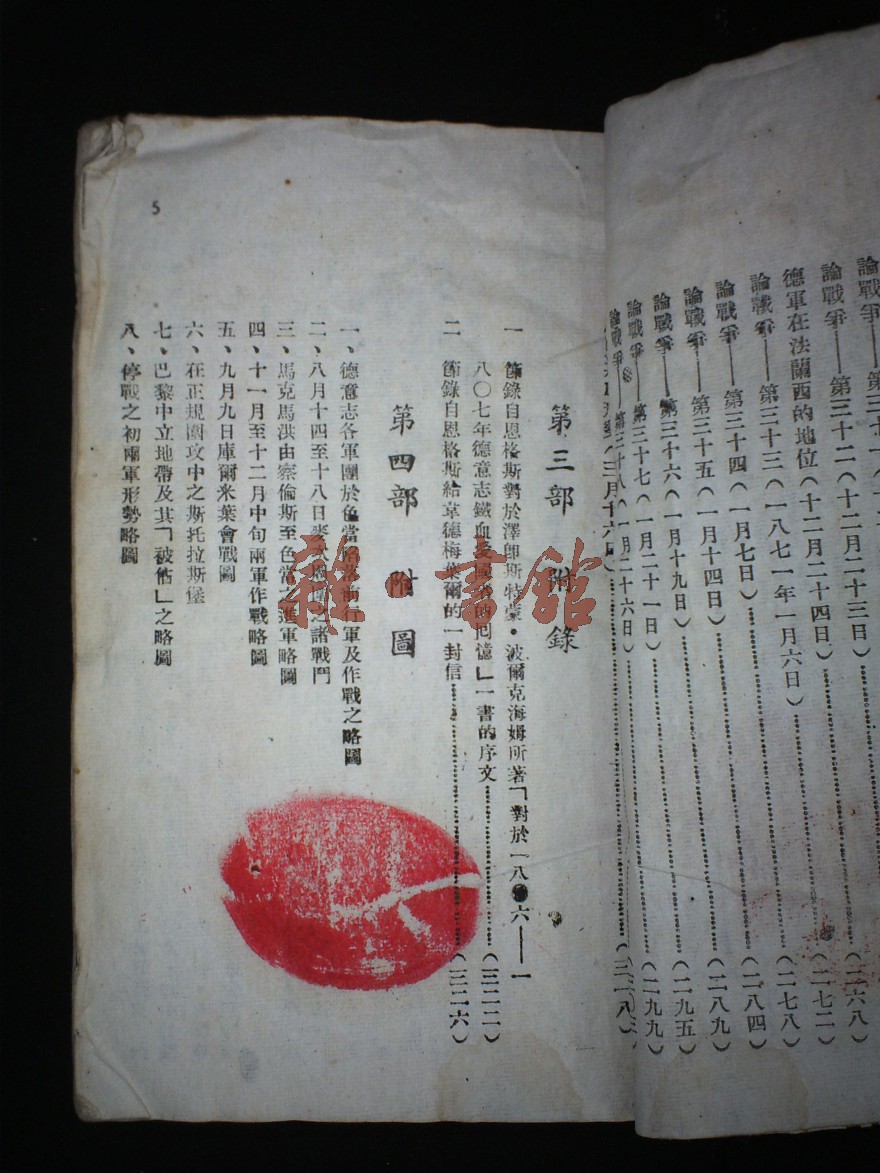 論戰爭——第三十一
論戰爭——第三十二（十二月二十三日）（二六八）
德軍在法蘭西的地位（十二月二十四日）（二七二）
論戰爭——第三十三（一八七一年一月六日）（二七八）
論戰爭——第三十四（一月七日）（二八四）
論戰爭——第三十五（一月十四日）（二八九）
論戰爭——第三十六（一月十九日）（二九五）
論戰爭——第三十七（一月二十一日）（二九九）
論戰爭——第三十八（一月二十六日）
第三部 附錄
一 節錄自恩格斯對於澤卽斯特蒙・波爾克海姆所著「對於一八〇六——一
八〇七年德意志鐵血愛國者的回憶」一書的序文（三二二）
二 節錄自恩格斯給韋德梅葉爾的一封信（三二六）
第四部 附圖
一、德意志各軍團於色當戰前行軍及作戰之略圖
二、八月十四至十八日麥次之諸戰鬥
三、馬克馬洪由察倫斯至色當之進軍略圖
四、十一月至十二月中旬兩軍作戰略圖
五、九月九日庫爾米葉會戰圖
六、在正規圍攻中之斯托拉斯堡
七、巴黎中立地帶及其「被佔」之略圖
八、停戰之初兩軍形勢略圖
5
雜・書館